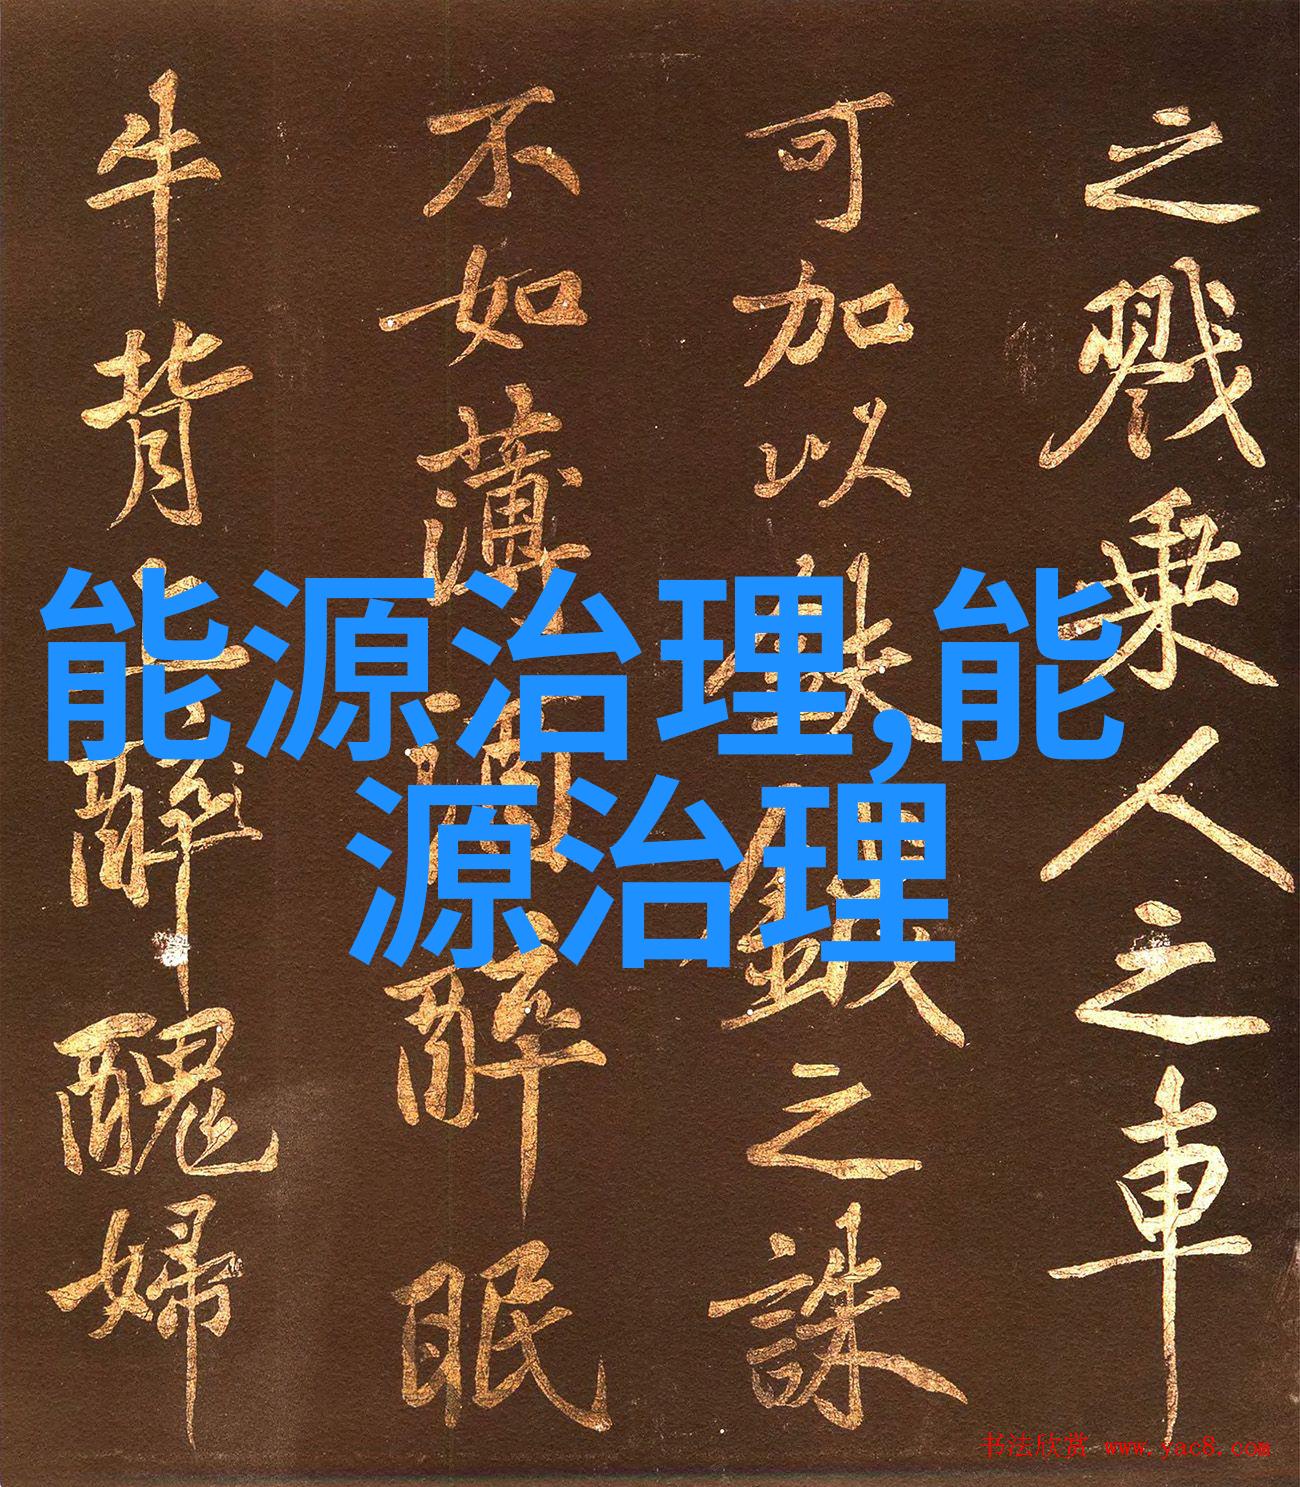 之戮乘人之車
可加以鈇鉞之誅
不如薄酒醉眠
牛背上醉醜婦
能源治理,能
源治理
书法欣赏 www.yac8.com